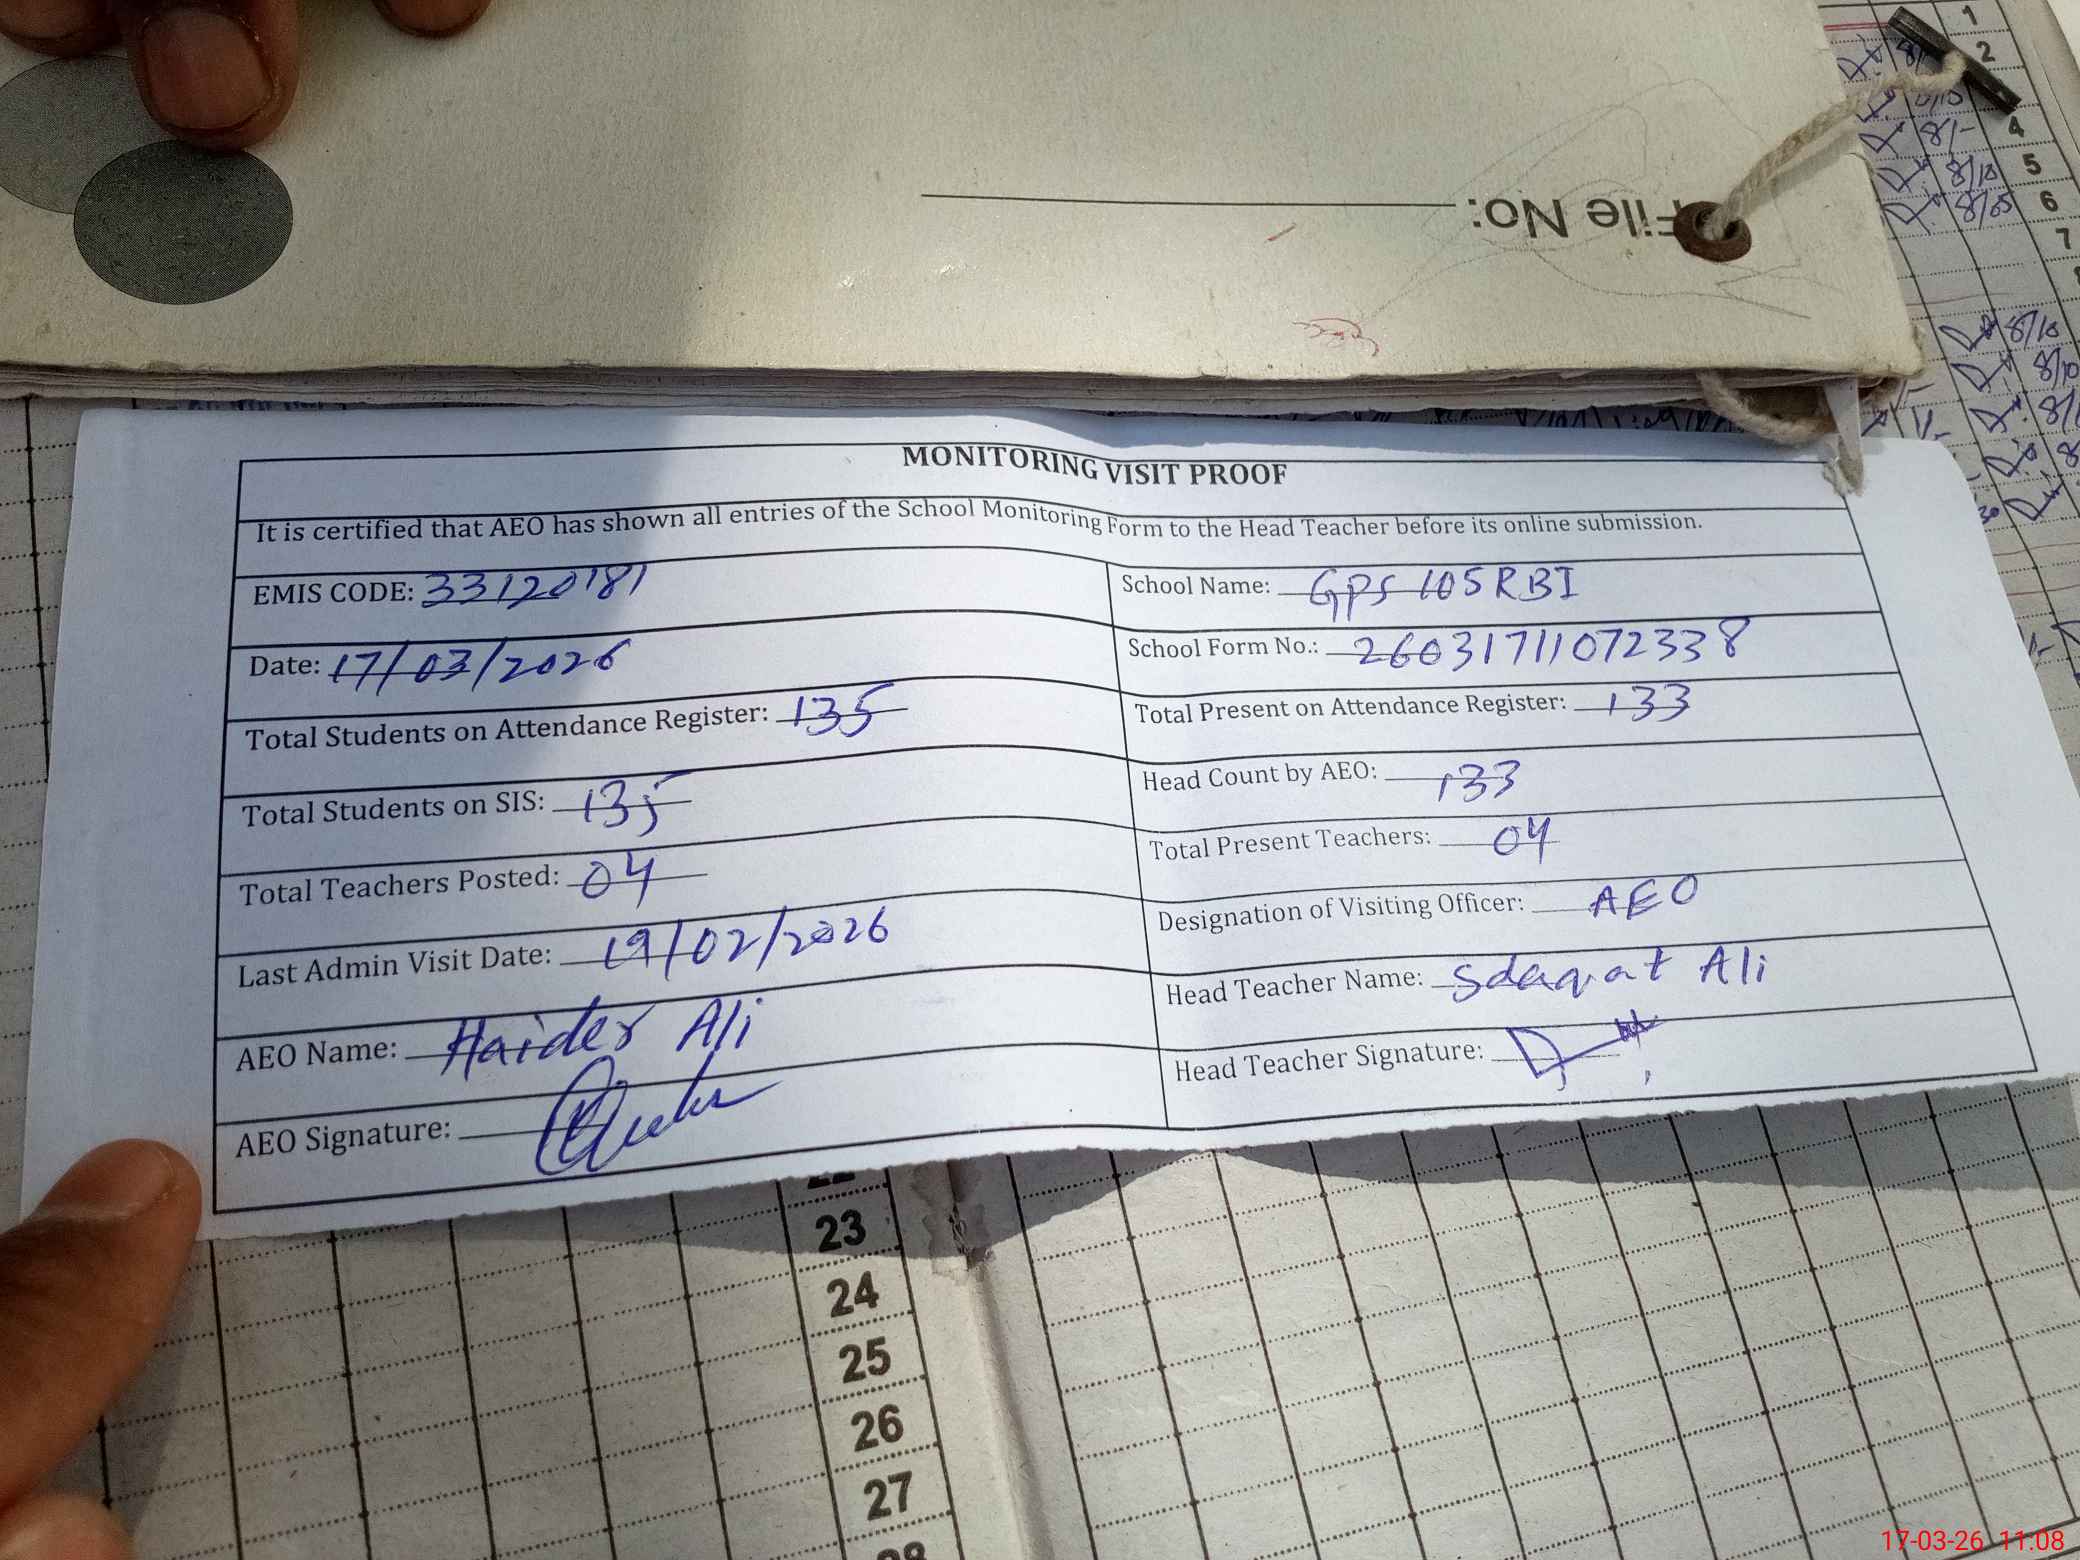 File No:
1
2
4
5
6
7
8/-
8/10
8/05
8/10
8/10
MONITORING VISIT PROOF
It is certified that AEO has shown all entries of the School Monitoring Form to the Head Teacher before its online submission.
EMIS CODE: 33120181
School Name: GPS 105 RBI
Date: 17/03/2026
School Form No.: 26031711072338
Total Students on Attendance Register: 135
Total Present on Attendance Register: 133
Total Students on SIS: 135
Head Count by AEO: 133
Total Teachers Posted: 04
Total Present Teachers: 04
Last Admin Visit Date: 19/02/2026
Designation of Visiting Officer: AEO
AEO Name: Haider Ali
Head Teacher Name: Sdaqat Ali
AEO Signature:
Head Teacher Signature:
23
24
25
26
27
28
17-03-26 11:08